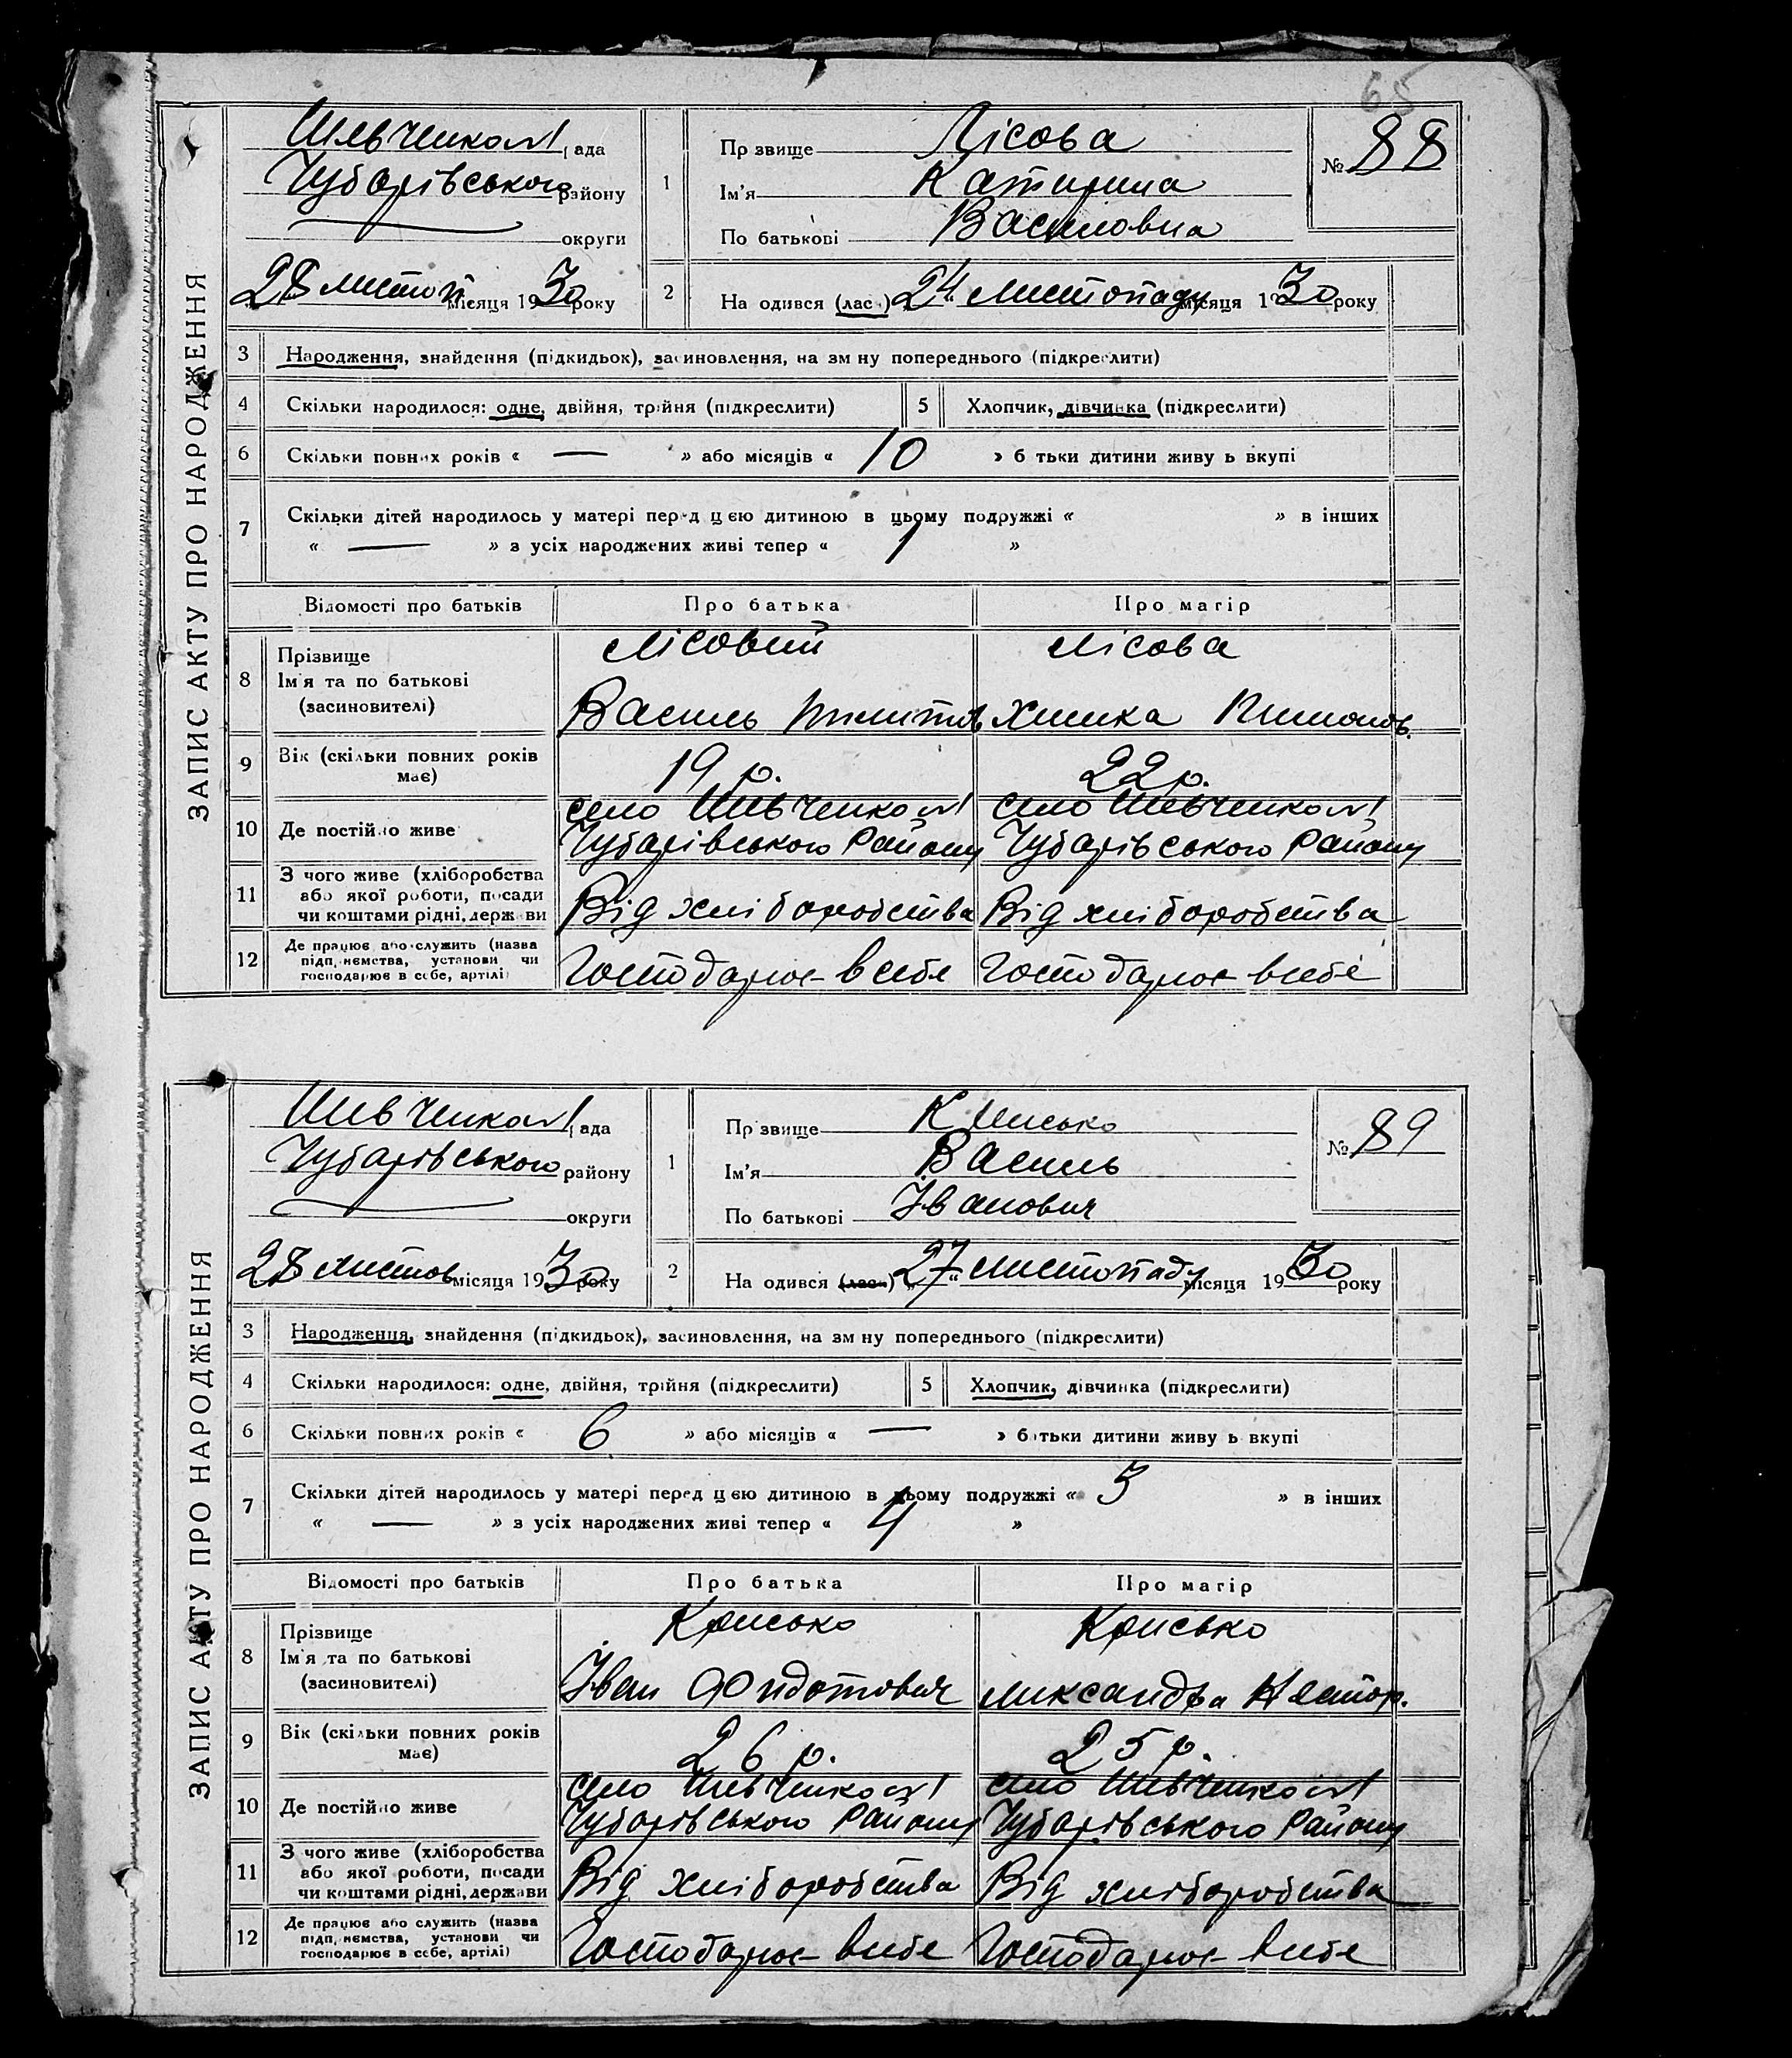 65
ЗАПИС АКТУ ПРО НАРОДЖЕННЯ
Шевченком рада
Чубарівського району
округи
28 листоп. місяця 1930 року
1
Пр звище Лісова
Ім'я Катирина
По батькові Василовна
№ 88
2
На одився (лас ) 24 листопаду місяця 1930 року
3 Народження, знайдення (підкидьок), засиновлення, на зм ну попереднього (підкреслити)
4 Скільки народилося: одне, двійня, трійня (підкреслити) 5 Хлопчик, дівчинка (підкреслити)
6 Скільки повних років « — » або місяців « 10 » б тьки дитини живу ь вкупі
7 Скільки дітей народилось у матері перед цією дитиною в цьому подружжі « » в інших
« — » з усіх народжених живі тепер « 1 »
Відомості про батьків Про батька Про матір
8 Прізвище
Ім'я та по батькові
(засиновителі)
Лісовий Лісова
Василь Химка
9 Вік (скільки повних років
має)
19 р. 22 р.
10 Де постійно живе
село Шевченком село Шевченком
Чубарівського Району Чубарівського Району
11 З чого живе (хліборобства
або якої роботи, посади
чи коштами рідні, держави
Від хліборобства Від хліборобства
12 Де працює або служить (назва
підп, иємства, установи чи
господарює в себе, артілі)
Господарює в себе Господарює в себе
ЗАПИС АКТУ ПРО НАРОДЖЕННЯ
Шевченком рада
Чубарівського району
округи
28 листоп місяця 1930 року
1
Пр звище Крисько
Ім'я Василь
По батькові Іванович
№ 89
2
На одився (лась) 27 листопаду місяця 1930 року
3 Народження, знайдення (підкидьок), засиновлення, на зм ну попереднього (підкреслити)
4 Скільки народилося: одне, двійня, трійня (підкреслити) 5 Хлопчик, дівчинка (підкреслити)
6 Скільки повних років « 6 » або місяців « — » батьки дитини живу ь вкупі
7 Скільки дітей народилось у матері перед цією дитиною в цьому подружжі « 3 » в інших
« — » з усіх народжених живі тепер « 4 »
Відомості про батьків Про батька Про матір
8 Прізвище
Ім'я та по батькові
(засиновителі)
Крисько Крисько
Іван Фидотович Ликсандра Нестор.
9 Вік (скільки повних років
має)
26 р. 25 р.
10 Де постійно живе
село Шевченком село Шевченком
Чубарівського Району Чубарівського Району
11 З чого живе (хліборобства
або якої роботи, посади
чи коштами рідні, держави
Від хліборобства Від хліборобства
12 Де працює або служить (назва
підп, иємства, установи чи
господарює в себе, артілі)
Господарює в себе Господарює в себе